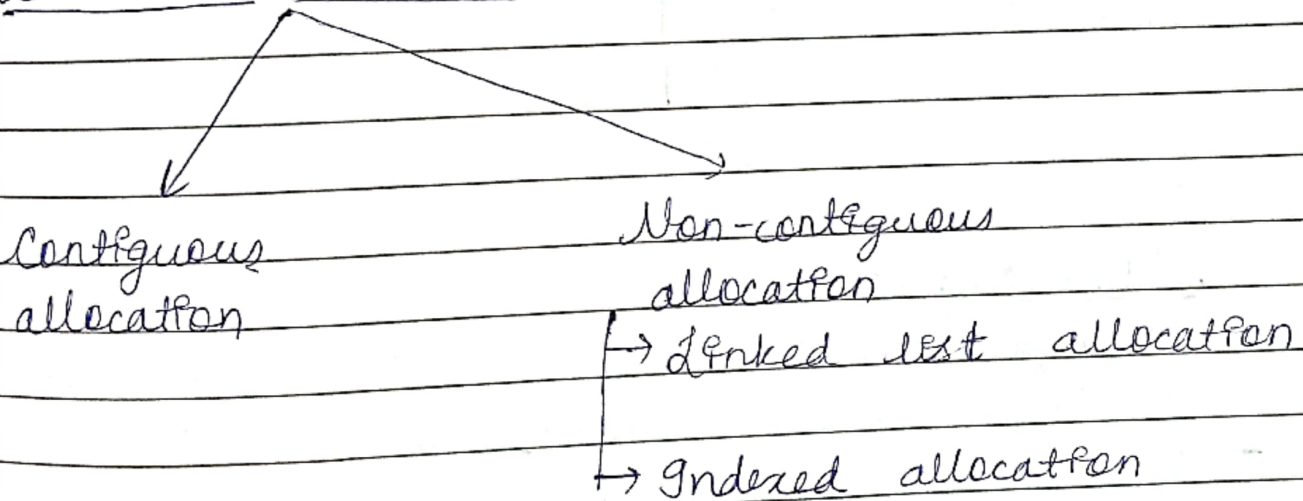 Contiguous
allocation
Non-contiguous
allocation
→ Linked list allocation
→ Indexed allocation